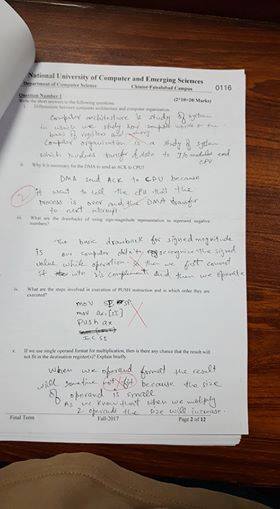 National University of Computer and Emerging Sciences
Department of Computer Science Chiniot-Faisalabad Campus 0116
Question Number 1 (2*10=20 Marks)
Write the short answers to the following questions:
i. Differentiate between computer architecture and computer organization.
Computer architecture is study of system
in which we study how computer works on the
basis of registers and
Computer organization is a study of system
which involves transfer of data to I/o modules and
CPU
ii. Why it is necessary for the DMA to send an ACK to CPU?
DMA send ACK to CPU because
2
it want to tell the CPU that the
process is over and the DMA transfer
to next
iii. What are the drawbacks of using sign-magnitude representation to represent negative
numbers?
The basic drawback for signed magnitude
is our computer recognise the signed
value while operation then we first convert
it into 2's complement and then we operate
iv. What are the steps involved in execution of PUSH instruction and in which order they are
executed?
mov
mov ax,[SI]
PUSH ax
v. If we use single operand format for multiplication, then is there any chance that the result will
not fit in the destination register(s)? Explain briefly.
When we operand format the result
will sometime not fit because the size
of operand is small
As we know that when we multiply
2 operands the size will increase.
Final Term Fall-2017 Page 2 of 12